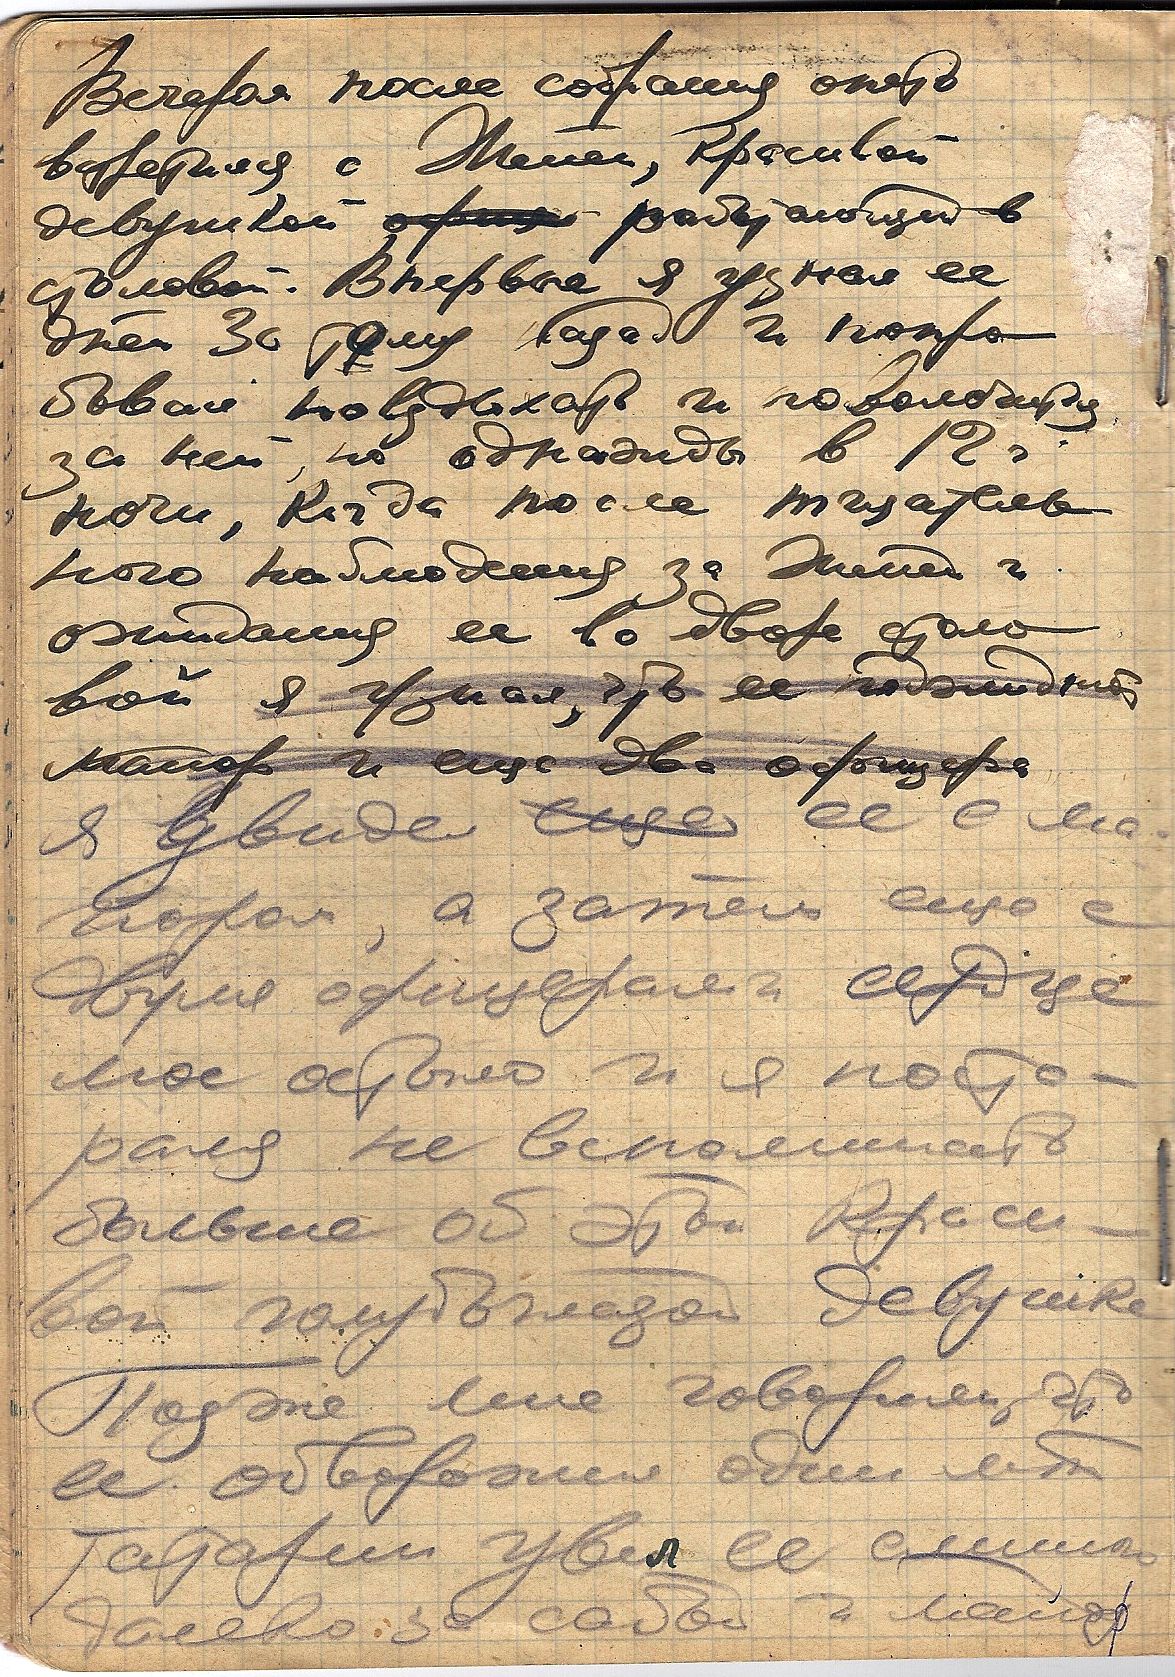 Вечером после собрания опять
встретился с Женей, красивой
девушкой офиц работающей в
столовой. Впервые я узнал ее
дней 30 тому назад и попро-
бывал повздыхать и поволочиться
за ней, но однажды в 12 ч
ночи, когда после тщатель-
ного наблюдения за Женей и
ожидания ее во дворе столо-
вой я узнал, что ее поджидают
майор и еще два офицера
я увидел еще ее с ма-
йором, а затем еще с
двумя офицерами сердце
мое остыло и я поста-
рался не вспоминать
больше об этой краси-
вой голубоглазой девушке
Позже мне говорили, что
ее обворожил один л-т
татарин увел ее слишком
далеко за собой и майор